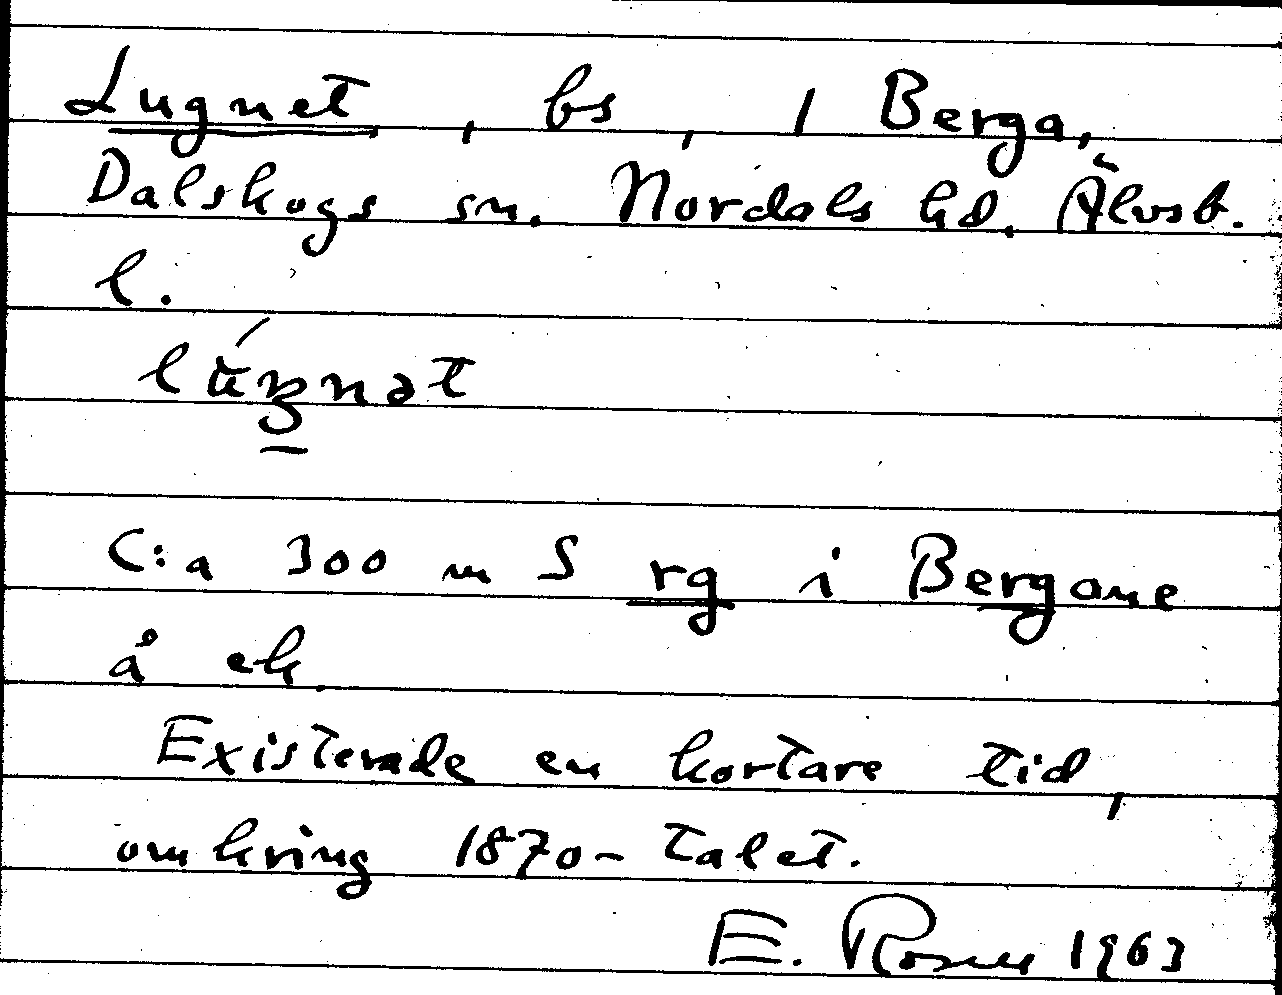 Lugnet, bs, 1 Berga,
Dalskogs sn. Nordals hd. Älvsb.
l.
lúꞬnət
C:a 300 m S rg i Bergane
å ek
Existerade en kortare tid,
omkring 1870-talet.
E. Rosne 1963